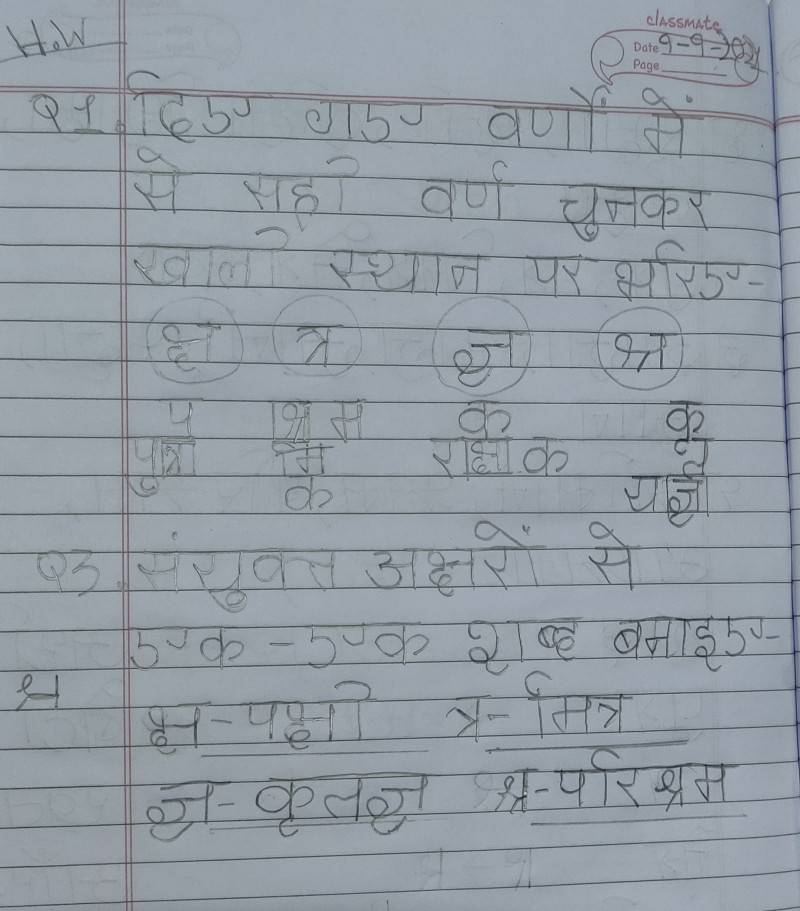 classmate
Date 9-9-2021
Page
H.W
Q1. दिए गए वर्णों में
से सही वर्ण चुनकर
खाली स्थान पर भरिए-
क्ष त्र ज्ञ श्र
प श्र म क कृ
पुत्र मि रक्षा क त
क यज्ञ
Q3. संयुक्त अक्षरों से
एक-एक शब्द बनाइए-
श्र
क्ष-पक्षी त्र-मित्र
ज्ञ-कृतज्ञ श्र-परिश्रम